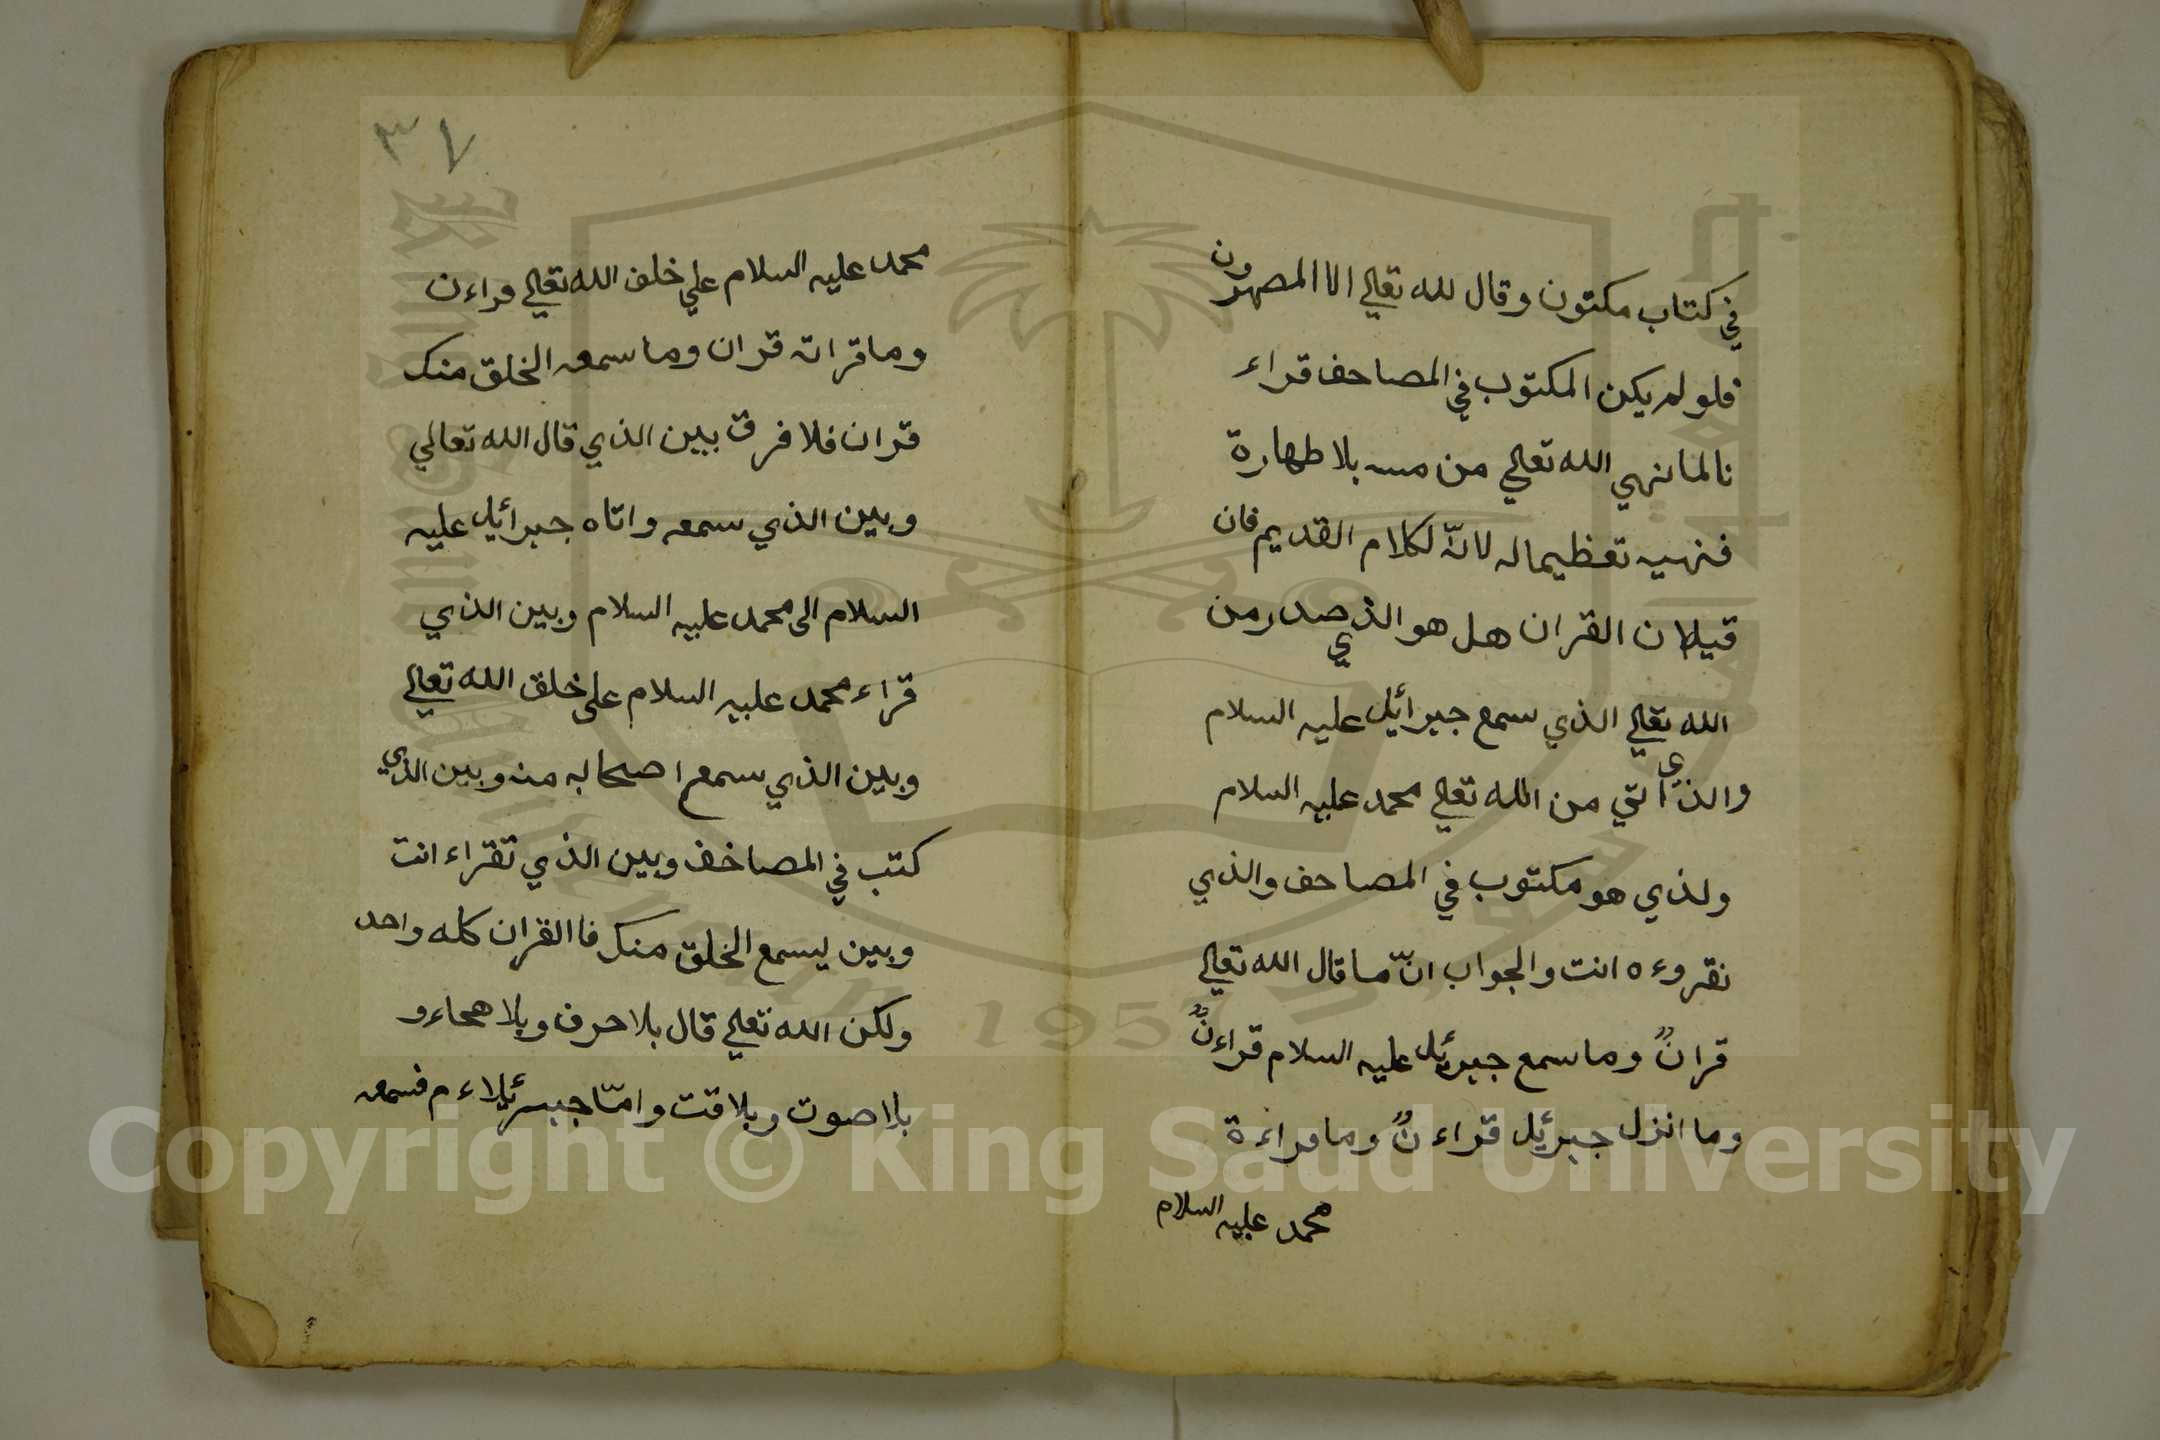 في كتاب مكتون وقال لله تعالي الا المصهرون
فلو لم يكن المكتوب في المصاحف قراء
نا لما نهي الله تعالي من مسه بلا طهارة
فنهيه تعظيما له لانّه لكلام القديم فان
قيلان القران هل هو الذي صدر من
الله تعالي الذي سمع جبرائيل عليه السلام
والذي التي من الله تعالي محمد عليه السلام
ولذي هو مكتوب في المصاحف والذي
نقروءه انت والجواب انّ ما قال الله تعالي
قرانٌ وما سمع جبرئيل عليه السلام قراءنٌ
وما انزل جبرئيل قراءنٌ وما قراءة
محمد عليه السلام
٣٧
محمد عليه السلام علي خلف الله تعالي قراءن
وما قراته قران وما سمعه الخلق منك
قران فلا فرق بين الذي قال الله تعالي
وبين الذي سمعه واتاه جبرائيل عليه
السلام الى محمد عليه السلام وبين الذي
قراء محمد عليه السلام على خلق الله تعالي
وبين الذي سمع اصحابه منه وبين الذي
كتب في المصاخف وبين الذي تقراء انت
وبين يسمع الخلق منك فا القران كله واحد
ولكن الله تعالي قال بلا حرف وبلا هجاء و
بلا صوت وبلا قت وامّا جبرئيلاءم فسمعه
Copyright © King Saud University
1957